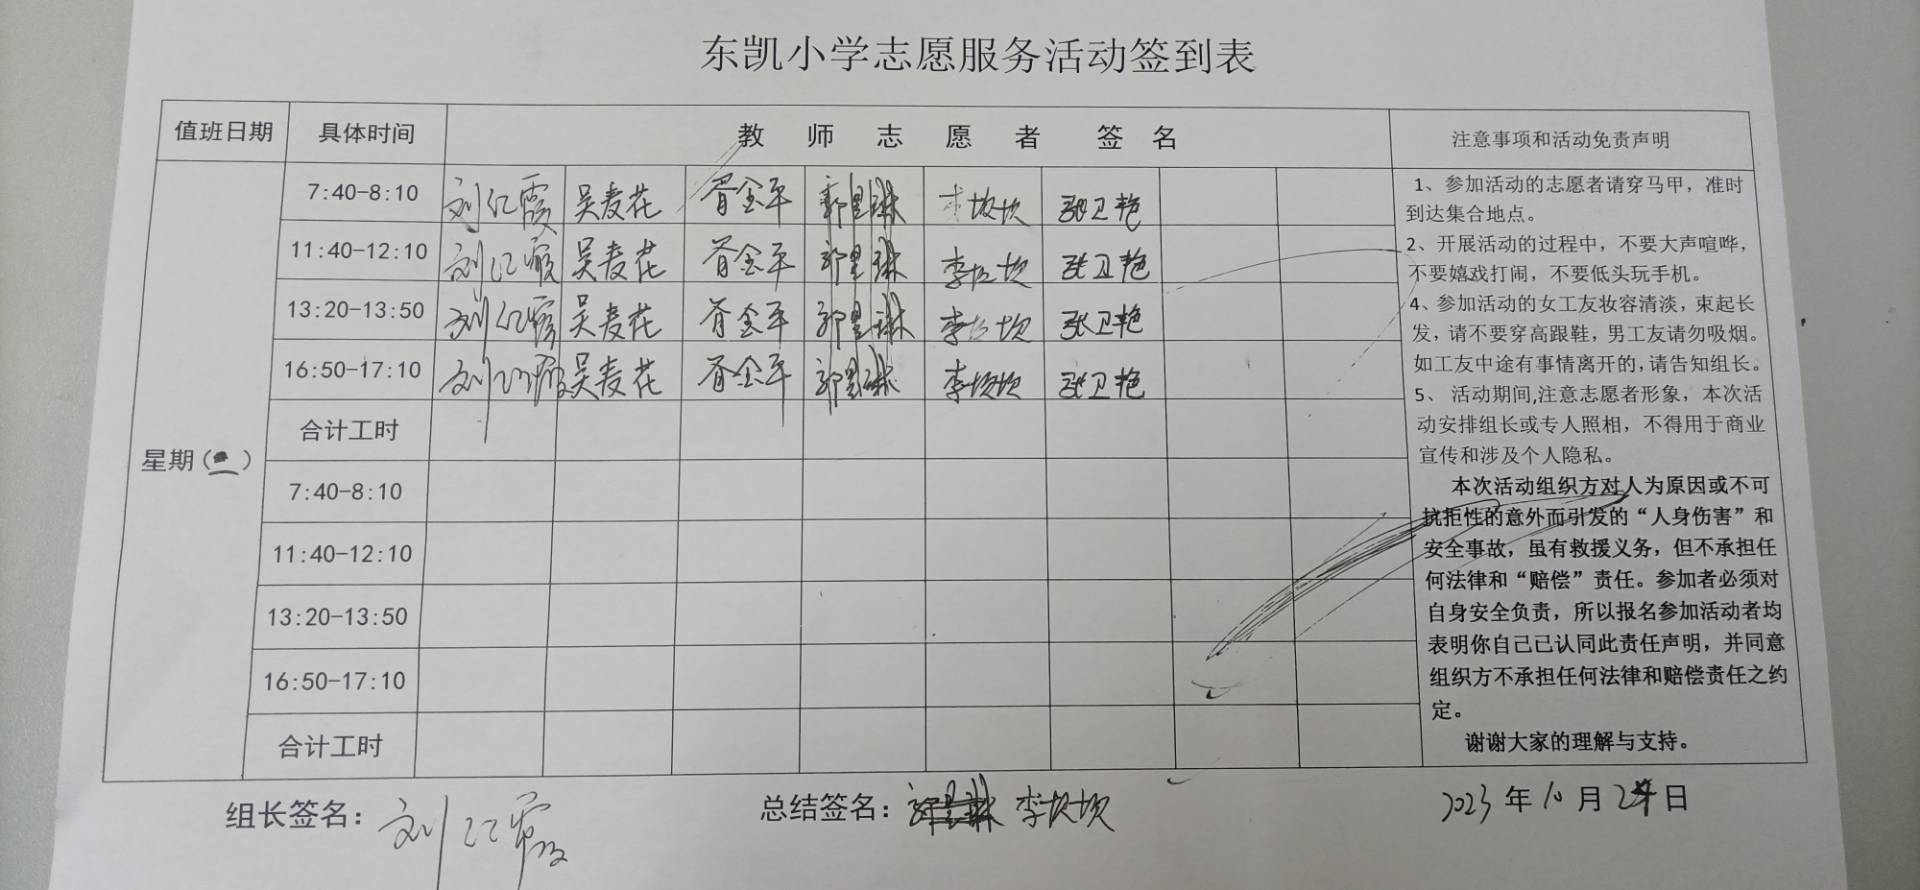 东凯小学志愿服务活动签到表
值班日期 具体时间 教师志愿者签名 注意事项和活动免责声明
7:40-8:10 刘红霞 吴麦花 胥金平 郭昱琳 张卫艳
11:40-12:10 刘红霞 吴麦花 胥金平 郭昱琳 张卫艳
13:20-13:50 刘红霞 吴麦花 胥金平 郭昱琳 张卫艳
16:50-17:10 刘红霞 吴麦花 胥金平 郭昱琳 张卫艳
合计工时
星期( )
7:40-8:10
11:40-12:10
13:20-13:50
16:50-17:10
合计工时
1、参加活动的志愿者请穿马甲，准时
到达集合地点。
2、开展活动的过程中，不要大声喧哗，
不要嬉戏打闹，不要低头玩手机。
4、参加活动的女工友妆容清淡，束起长
发，请不要穿高跟鞋，男工友请勿吸烟。
如工友中途有事情离开的,请告知组长。
5、 活动期间,注意志愿者形象，本次活
动安排组长或专人照相，不得用于商业
宣传和涉及个人隐私。
本次活动组织方对人为原因或不可
抗拒性的意外而引发的“人身伤害”和
安全事故，虽有救援义务，但不承担任
何法律和“赔偿”责任。参加者必须对
自身安全负责，所以报名参加活动者均
表明你自己已认同此责任声明，并同意
组织方不承担任何法律和赔偿责任之约
定。
谢谢大家的理解与支持。
组长签名：刘红霞 总结签名： 2023年10月24日